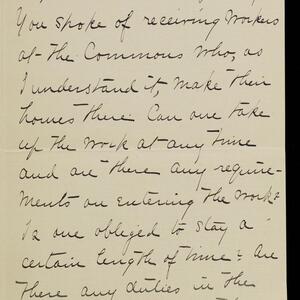 You spoke of receiving workers
at the Commons who, as
I understand it, make their
homes there. Can one take
up the work at any time
and are there any require-
ments on entering the work?
Is one obliged to stay a
certain length of time? Are
there any duties in the